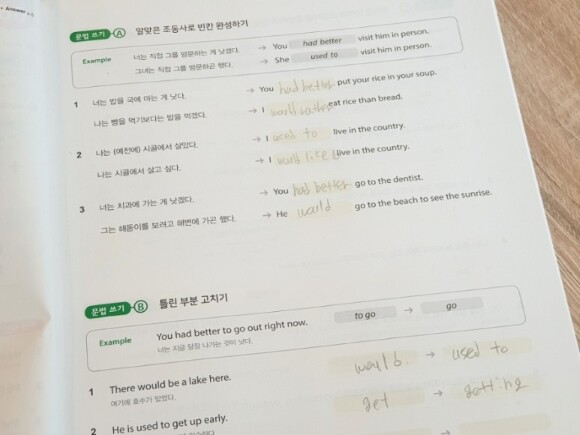 Answer
문법 쓰기 A 알맞은 조동사로 빈칸 완성하기
Example 너는 직접 그를 방문하는 게 낫겠다. → You had better visit him in person.
그녀는 직접 그를 방문하곤 했다. → She used to visit him in person.
1 너는 밥을 국에 마는 게 낫다. → You had better put your rice in your soup.
나는 빵을 먹기보다는 밥을 먹겠다. → I would rather eat rice than bread.
2 나는 (예전에) 시골에서 살았다. → I used to live in the country.
나는 시골에서 살고 싶다. → I would like to live in the country.
3 너는 치과에 가는 게 낫겠다. → You had better go to the dentist.
그는 해돋이를 보려고 해변에 가곤 했다. → He would go to the beach to see the sunrise.
문법 쓰기 B 틀린 부분 고치기
Example You had better to go out right now. to go → go
너는 지금 당장 나가는 것이 낫다.
1 There would be a lake here. would. → used to
여기에 호수가 있었다.
2 He is used to get up early. get → getting